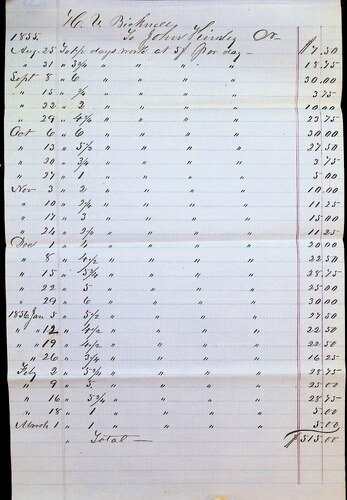 H. V. Bicknell
1855. To John Dr
Aug. 25 To 1½ days work at 5$ per day — $7.50
" 31 " 3¾ " " " " 18.75
Sept 8 " 6 " " " " 30.00
" 15 " ¾ " " " " 3.75
" 22 " 2 " " " " 10.00
" 29 " 4¾ " " " " 23.75
Oct 6 " 6 " " " " 30.00
" 13 " 5½ " " " " 27.50
" 20 " ¾ " " " " 3.75
" 27 " 1 " " " " 5.00
Nov 3 " 2 " " " " 10.00
" 10 " 2¼ " " " " 11.25
" 17 " 3 " " " " 15.00
" 24 " 2¼ " " " " 11.25
Dec 1 " 4 " " " " 20.00
" 8 " 4½ " " " " 22.50
" 15 " 5¾ " " " " 28.75
" 22 " 5 " " " " 25.00
" 29 " 6 " " " " 30.00
1856 Jan 5 " 5½ " " " " 27.50
" " 12 " 4½ " " " " 22.50
" " 19 " 4½ " " " " 22.50
" " 26 " 3¼ " " " " 16.25
Feby 2 " 5¾ " " " " 28.75
" 9 " 5 " " " " 25.00
" 16 " 5¾ " " " " 28.75
" 18 " 1 " " " " 5.00
March 1 " 1 " " " " 5.00
" Total — $515.00